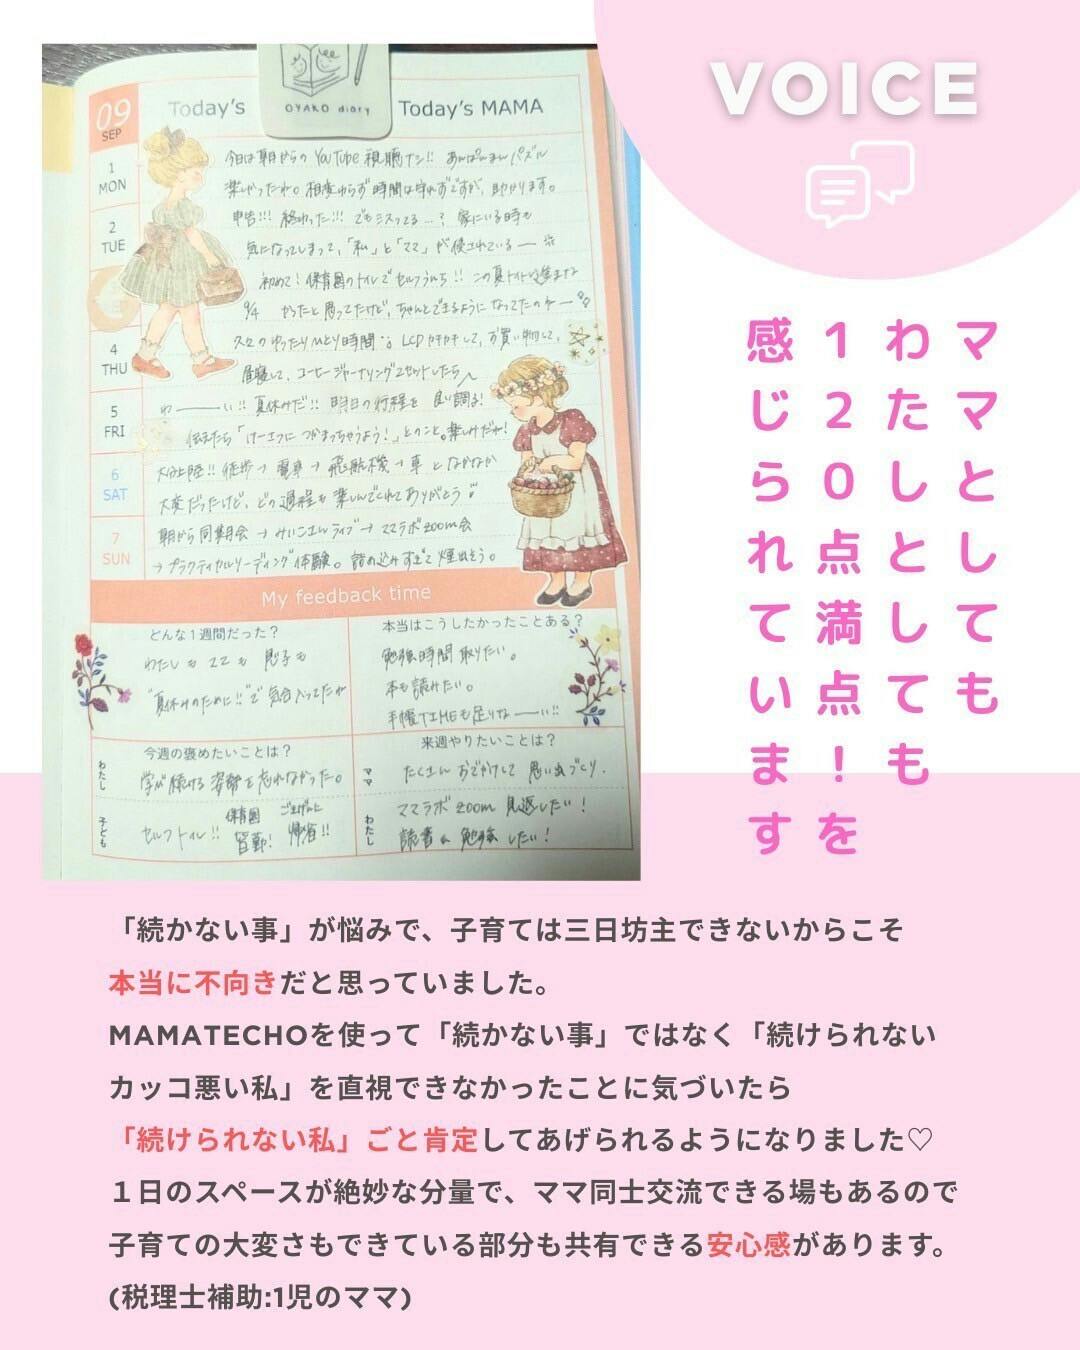 VOICE
ママとしても
わたしとしても
120点満点！を
感じられています
OYAKO diary
09
SEP
Today's
Today's MAMA
1
MON
今日は朝からの YouTube 視聴ナシ!! あんぱんまんパズル
楽しかったね。相変わらず時間は守れずですが、助かります。
2
TUE
申告!!! 終わった!!! でもミスってる…? 家にいる時も
気になってしまって、「私」と「ママ」が
初めて! 保育園のトイレでセルフうんち!! この夏トイトレ進まな
9/4 かったと思ってたけど、ちゃんとできるようになってたのね
4
THU
久々のゆったりひとり時間 して、お買い物して、
昼寝して、コーヒージャーナリングでセットしたら
5
FRI
わーーい!! 夏休みだ!! 明日の行程を
伝えたら とのこと。楽しみだね!
6
SAT
大分上陸!! 徒歩→電車→飛行機→車 となかなか
大変だったけど、どの過程も楽しんでくれてありがとう
7
SUN
朝から同期会→みいこさんライブ→ママラボzoom会
→プラクティカルリーディング体験。詰め込みすぎて煙出そう。
My feedback time
どんな1週間だった?
わたしもママも息子も
"夏休みのために!!"で気合入ってたね
本当はこうしたかったことある?
勉強時間取りたい。
本も読みたい。
手帳TIMEも足りなーーい!!
今週の褒めたいことは?
わたし
学び続ける姿勢を忘れなかった。
子ども
セルフトイレ!! 保育園皆勤! ごきげんに帰省!!
来週やりたいことは?
ママ
たくさんおでかけして思い出づくり.
わたし
ママラボzoom 見返したい!
読書&勉強したい!
「続かない事」が悩みで、子育ては三日坊主できないからこそ
本当に不向きだと思っていました。
MAMATECHOを使って「続かない事」ではなく「続けられない
カッコ悪い私」を直視できなかったことに気づいたら
「続けられない私」ごと肯定してあげられるようになりました♡
１日のスペースが絶妙な分量で、ママ同士交流できる場もあるので
子育ての大変さもできている部分も共有できる安心感があります。
(税理士補助:1児のママ)